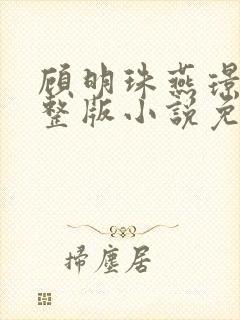 顾明珠燕璟
整版小说免
掃塵居